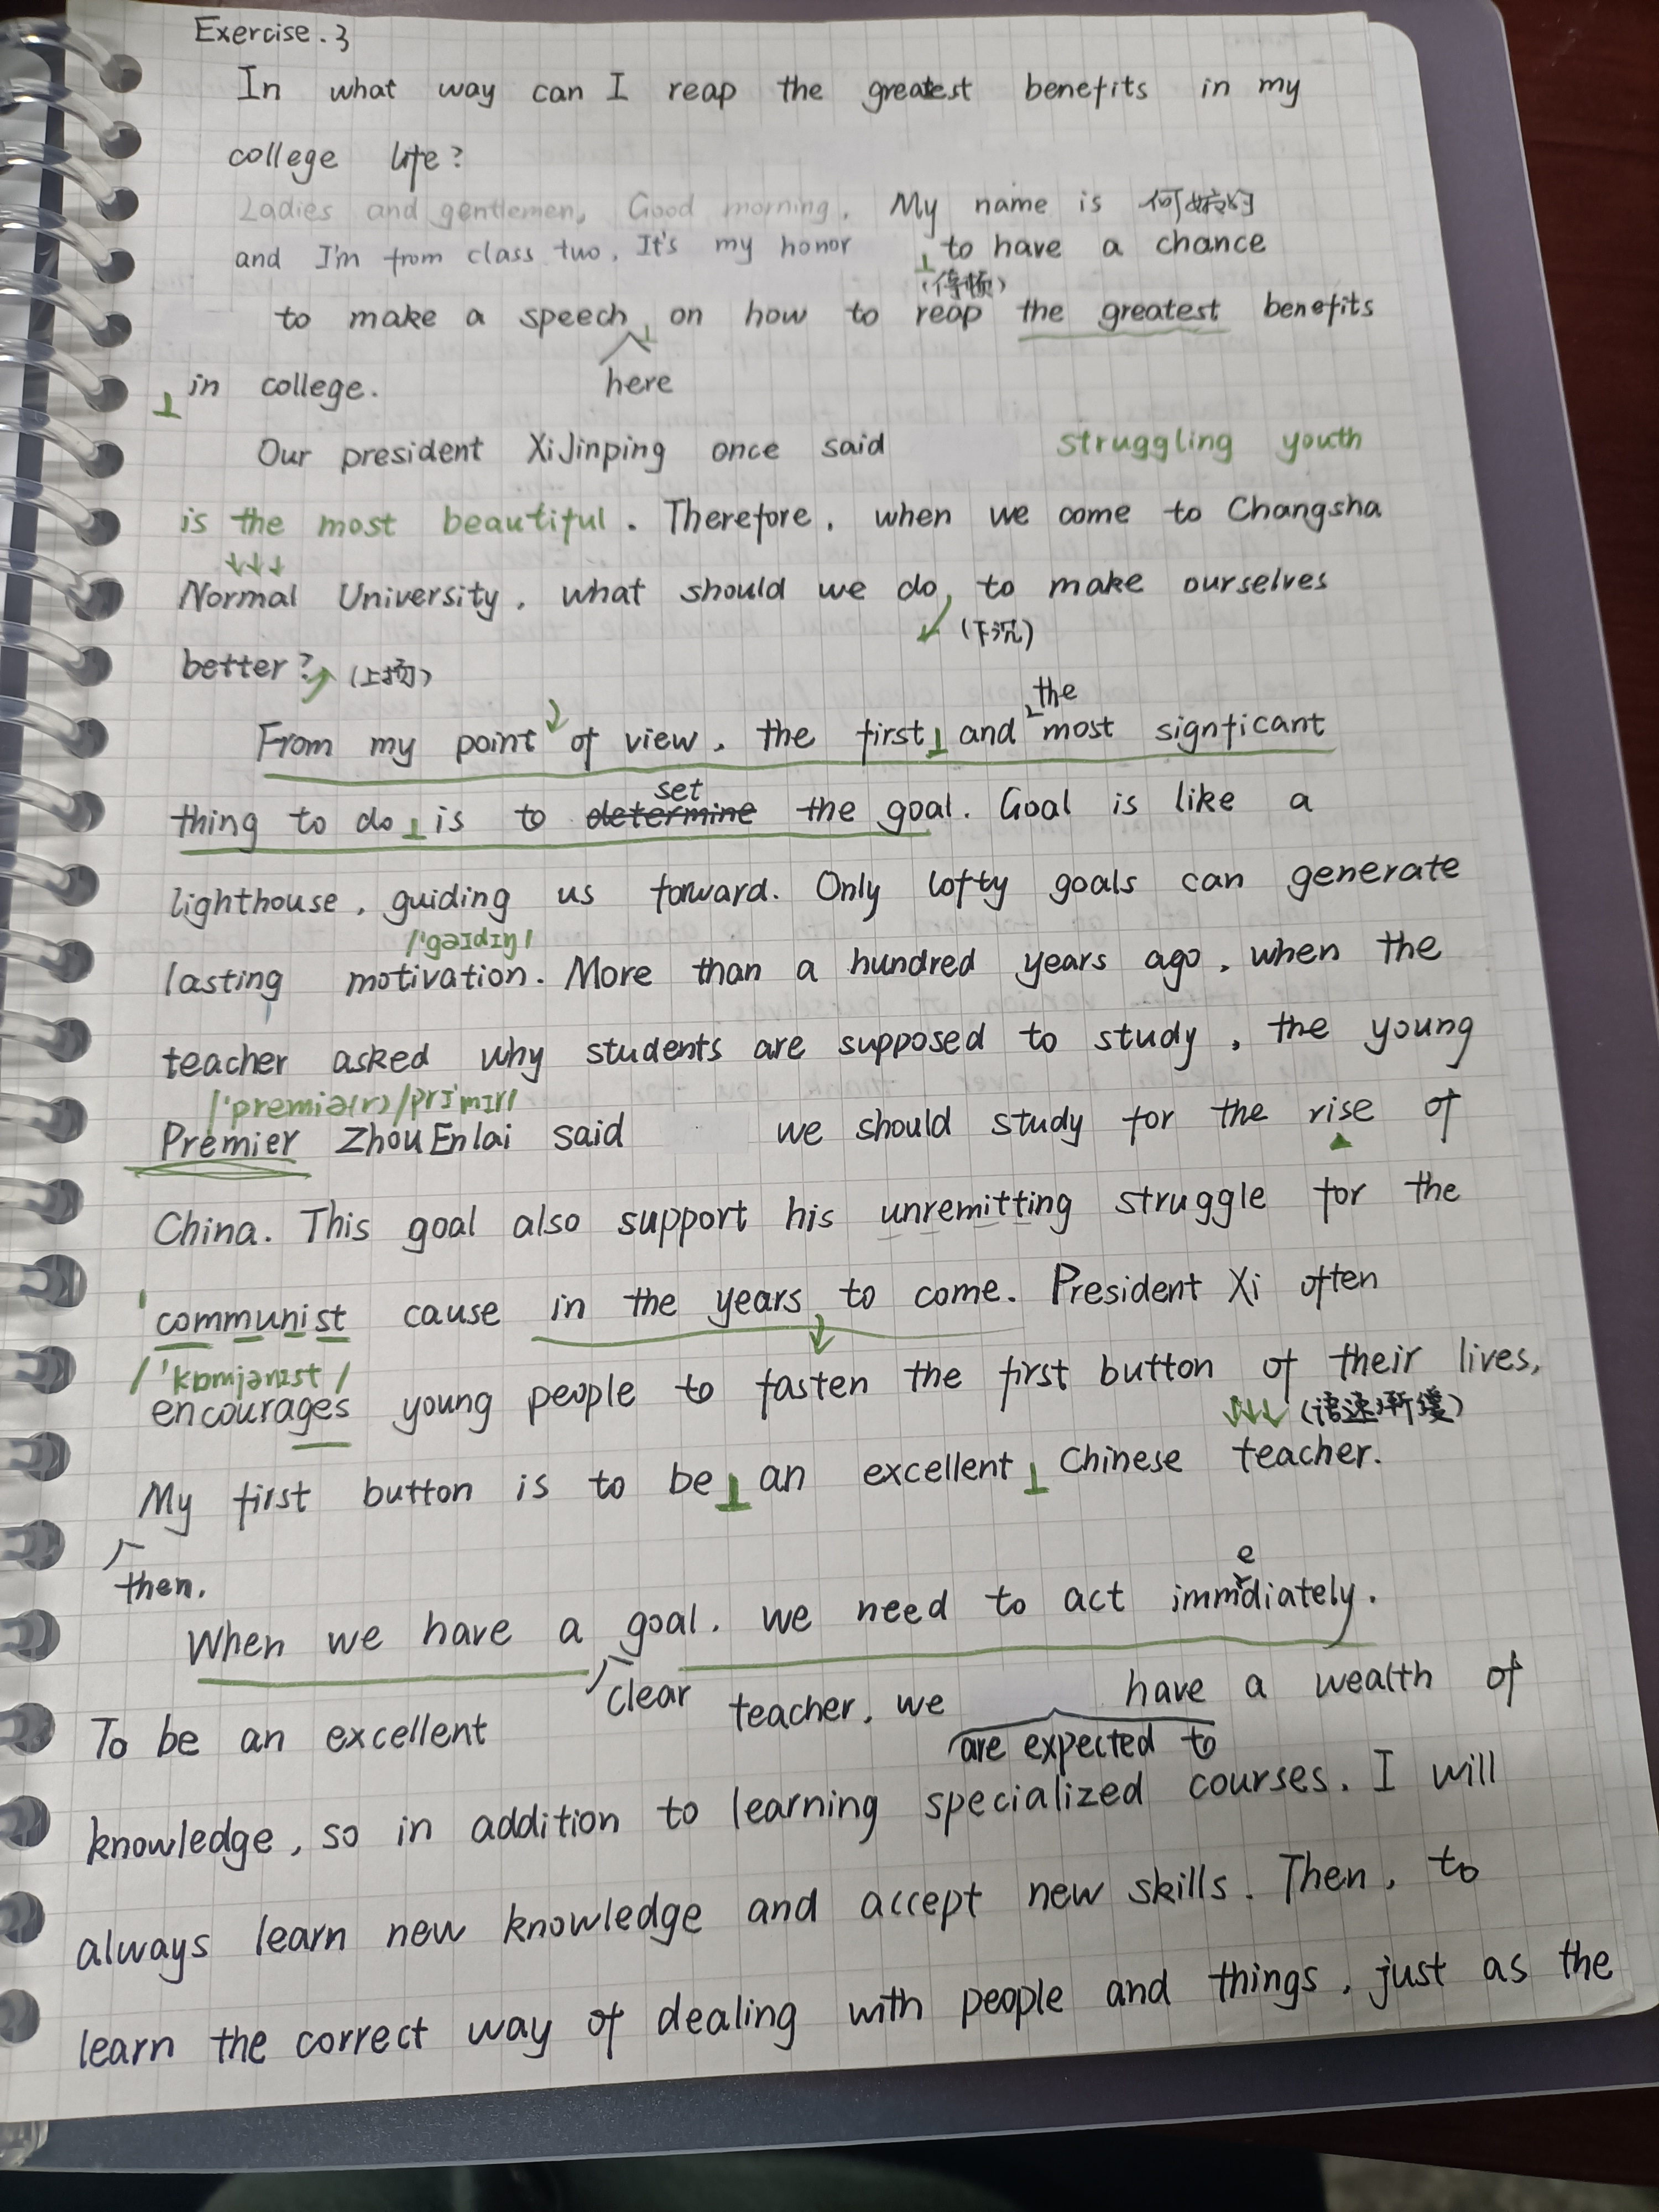 Exercise.3
In what way can I reap the greatest benefits in my
college life?
Ladies and gentlemen, Good morning. My name is
and I'm from class two. It's my honor to have a chance
(停顿)
to make a speech on how to reap the greatest benefits
here
in college.
Our president XiJinping once said struggling youth
is the most beautiful. Therefore, when we come to Changsha
Normal University, what should we do, to make ourselves
(下沉)
better? (上扬)
the
From my point of view, the first and most signficant
set
thing to do is to determine the goal. Goal is like a
lighthouse, guiding us forward. Only lofty goals can generate
/'gəɪdɪŋ/
lasting motivation. More than a hundred years ago, when the
teacher asked why students are supposed to study, the young
/'premiə(r)/prɪ'mɪr/
Premier ZhouEnlai said we should study for the rise of
China. This goal also support his unremitting struggle for the
communist cause in the years to come. President Xi often
/'kɒmjənɪst/
encourages young people to fasten the first button of their lives,
(语速渐缓)
My first button is to be an excellent Chinese teacher.
then.
e
When we have a goal, we need to act immdiately.
clear
To be an excellent teacher, we have a wealth of
are expected to
knowledge, so in addition to learning specialized courses. I will
always learn new knowledge and accept new skills. Then, to
learn the correct way of dealing with people and things, just as the